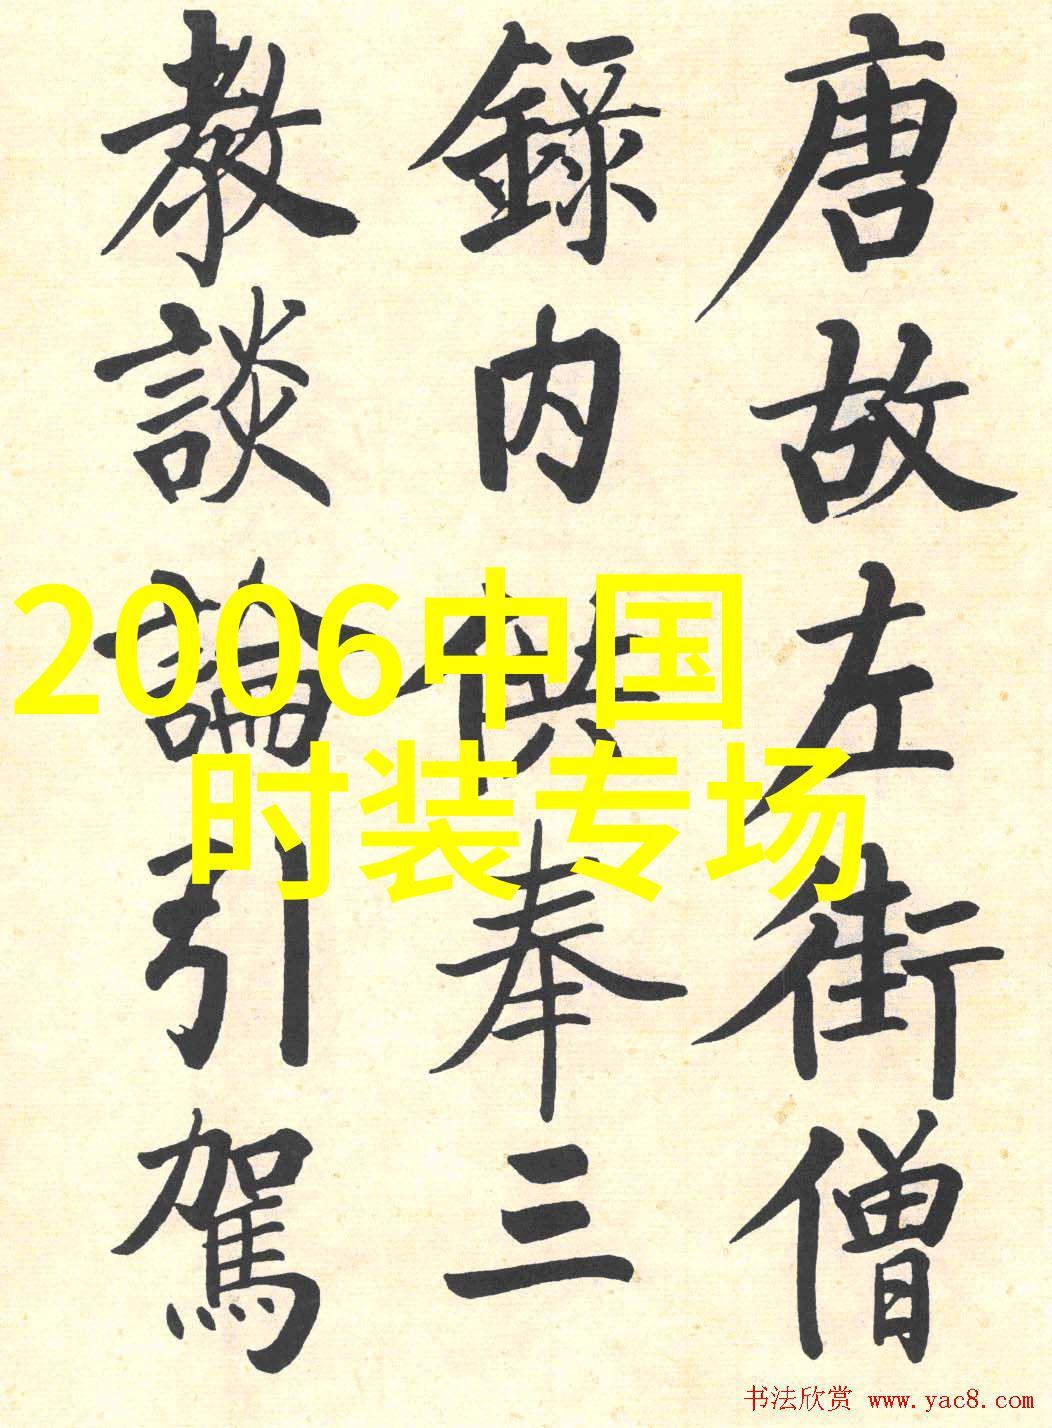 唐故左街僧
錄内供奉三
教談論引駕
2006中国
时装专场
书法欣赏 www.yac8.com